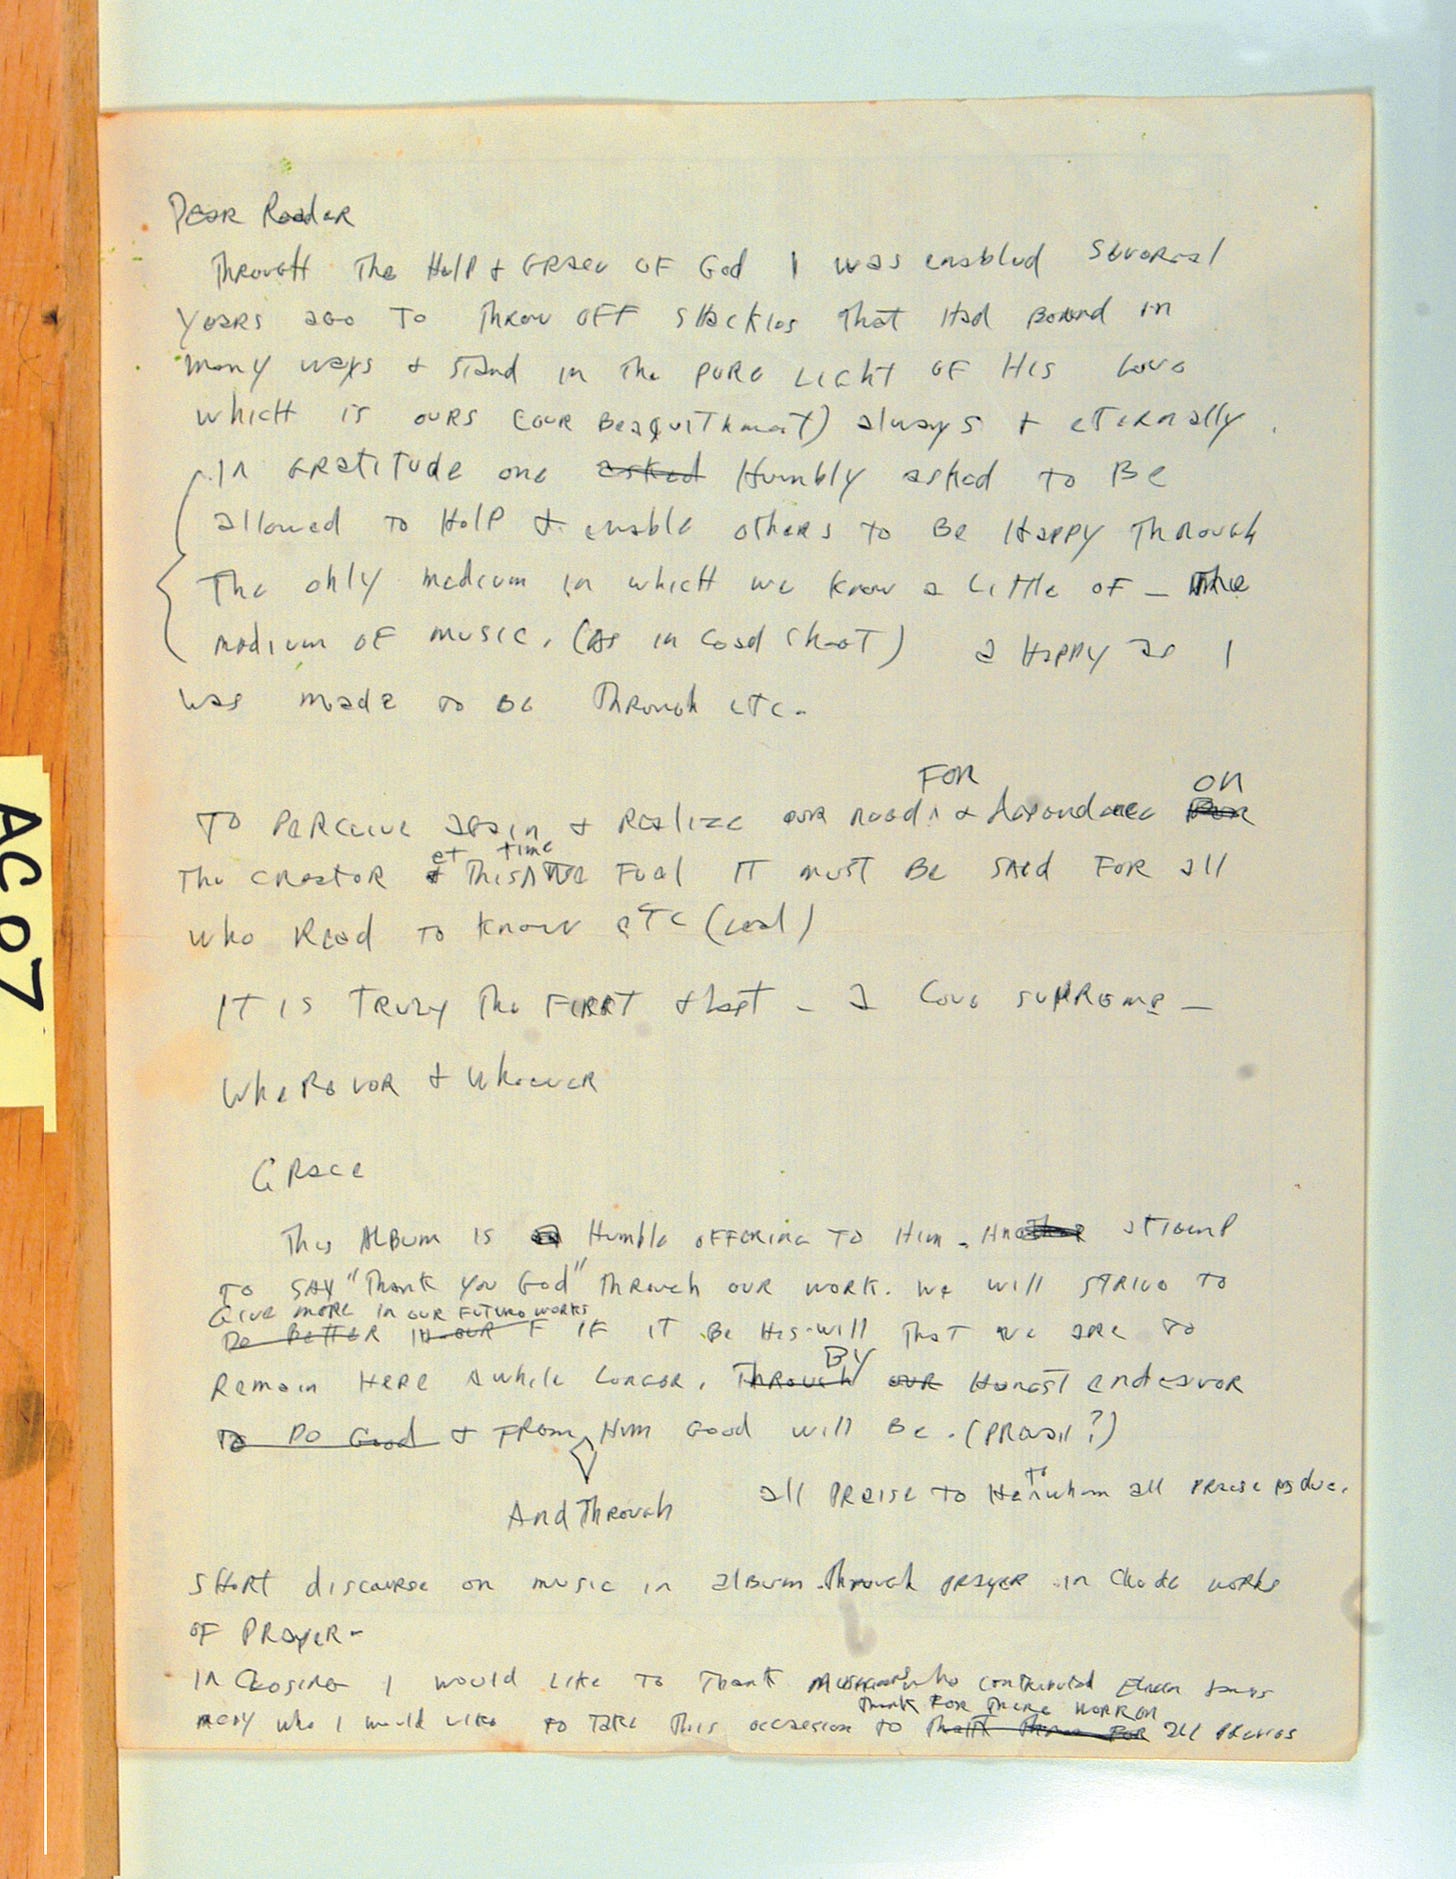 AC07
Dear Reader
Through The Help & Grace OF God I was enabled several
years ago To Throw OFF shackles That Had Bound in
many ways & stand in the pure Light OF His Love
which is ours (our Beaquithment) always & eternally.
In Gratitude one asked Humbly asked to Be
allowed To Help & enable others to Be Happy Through
The only medium in which we know a little of — The
medium OF music. (As in Good Shoot) a Happy as I
was made to be Through etc.
FOR ON
To Perceive again & Realize our need & dependence For
at time
The Creator & This Fuel IT must Be said For all
who Read To know eTc (Lead)
IT IS TRULY The FIRST & Last - a Love supreme —
Wherever & Whoever
Grace
This Album is a Humble offering To Him. Another attempt
To say "Thank You God" Through our work. We will strive To
Give more in our Future works
Do Better In our F IF iT Be His will That we are To
BY
Remain Here Awhile Longer. Through our Honest endeavor
To Do Good & From Him Good will Be. (Prevail?)
to
all praise to Him whom all praise is due.
And Through
Short discourse on music in album. Through prayer in works
OF Prayer-
In Closing I would Like To Thank musicians who contributed
Thank For There
many who I would Like To Take This occasion to all